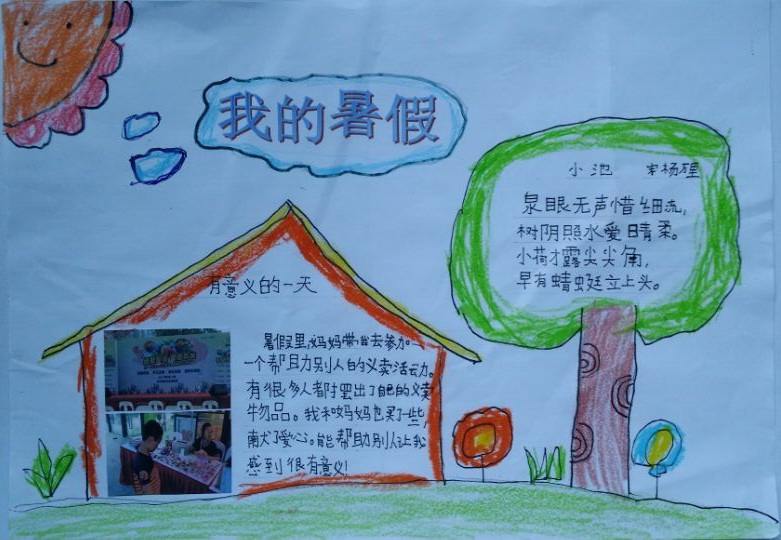 我的暑假
小池 宋杨万里
泉眼无声惜细流,
树阴照水愛晴柔。
小荷才露尖尖角,
早有蜻蜓立上头。
有意义的一天
暑假里,妈妈带我去参加
一个帮助别人的义卖活动。
有很多人都摆出了自己的义卖
物品。我和妈妈也买了一些,
献了爱心。能帮助别人让我
感到很有意义!